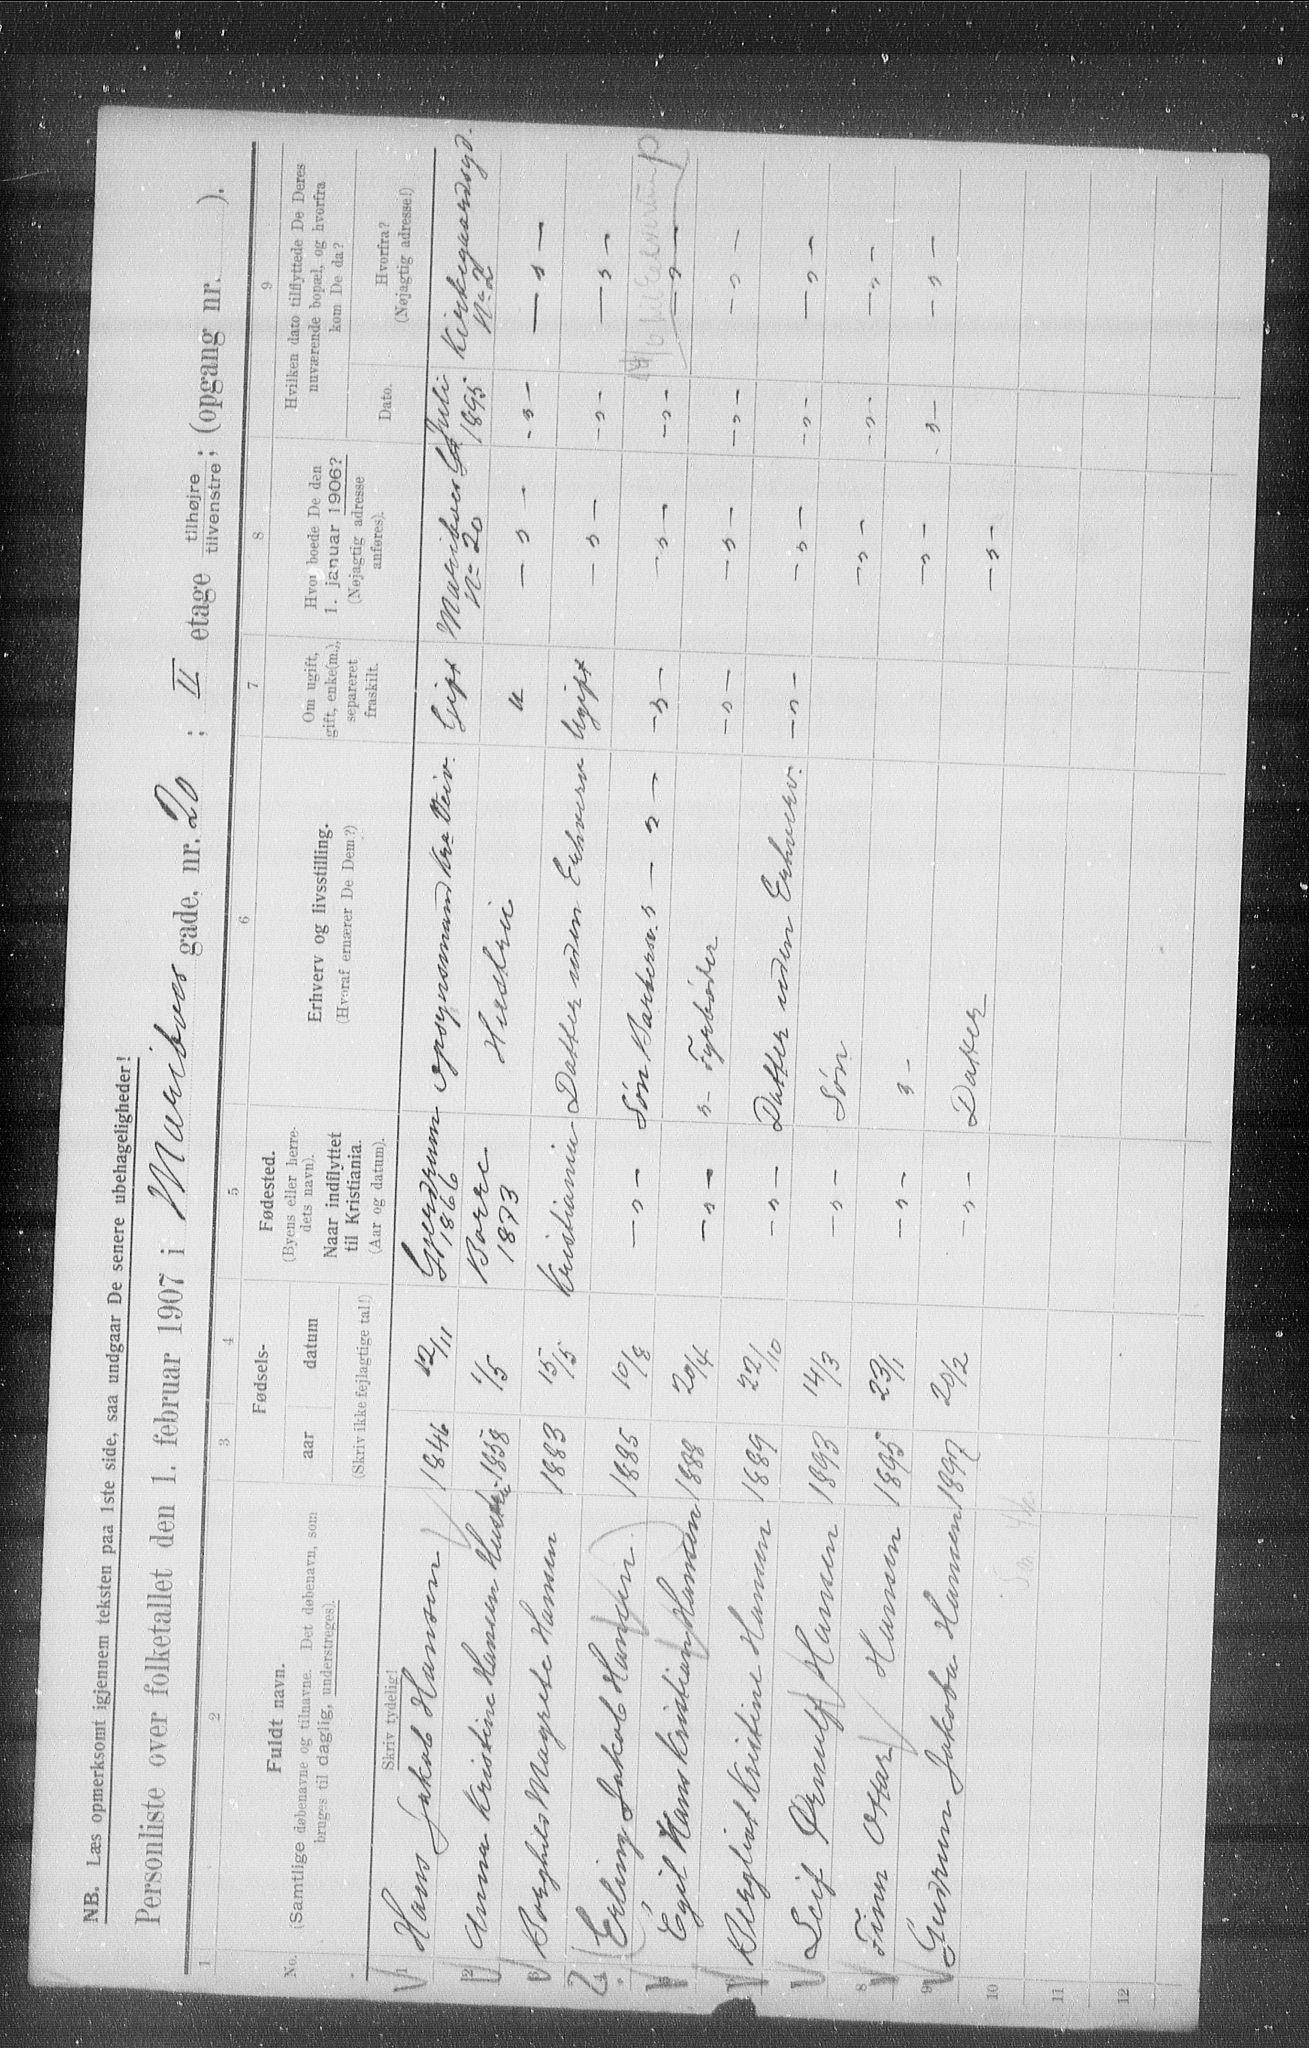 NB. Læs opmerksomt igjennem teksten paa 1ste side, saa undgaar De senere ubehageligheder!
Personliste over folketallet den 1. februar 1907 i Mariboes gade, nr. 20 ; II etage tilhøjre tilvenstre ; (opgang nr. ).
1 2 3 4 5 6 7 8 9
No. Fuldt navn. (Samtlige døbenavne og tilnavne. Det døbenavn, som bruges til daglig, understreges). Skriv tydelig!
Fødsels- aar datum (Skriv ikke fejlagtige tal!)
Fødested. (Byens eller herredets navn). Naar indflyttet til Kristiania. (Aar og datum).
Erhverv og livsstilling. (Hvoraf ernærer De Dem?)
Om ugift, gift, enke(m.), separeret fraskilt.
Hvor boede De den 1. januar 1906? (Nøjagtig adresse anføres).
Hvilken dato tilflyttede De Deres nuværende bopæl, og hvorfra kom De da? Dato. Hvorfra? (Nøjagtig adresse!)
1 Hans Jakob Hansen 1846 12/11 Gjerdrum 1866 opsynsmand Kra Veiv. Gift Mariboes Gd No 20 Juli 1895 Kirkegaardsgd. No 2
2 Anna Kristine Hansen Hustru 1858 1/5 Borre 1873 Hustru " - " - - " - - " -
3 Borghild Magrete Hansen 1883 15/5 Kristiania Datter uden Erhverv Ugift - " - - " - - " -
4 Erling Jakob Hansen 1885 10/8 - " - Søn - " - - " - - " - - " - - " -
Egil Hans Kristian Hansen 1888 20/4 - " - " - Fyrbøder - " - - " - - " - - " -
Bergliot Kristine Hansen 1889 22/10 - " - Datter uden Erhverv. - " - - " - - " - - " -
Leif Ørnulf Hansen 1893 14/3 - " - Søn - " - - " - - " -
8 Finn Ottar Hansen 1895 23/1 - " - " - - " - - " - - " -
9 Gudrun Jakoba Hansen 1897 20/2 - " - Datter - " - - " - - " -
10
11
12